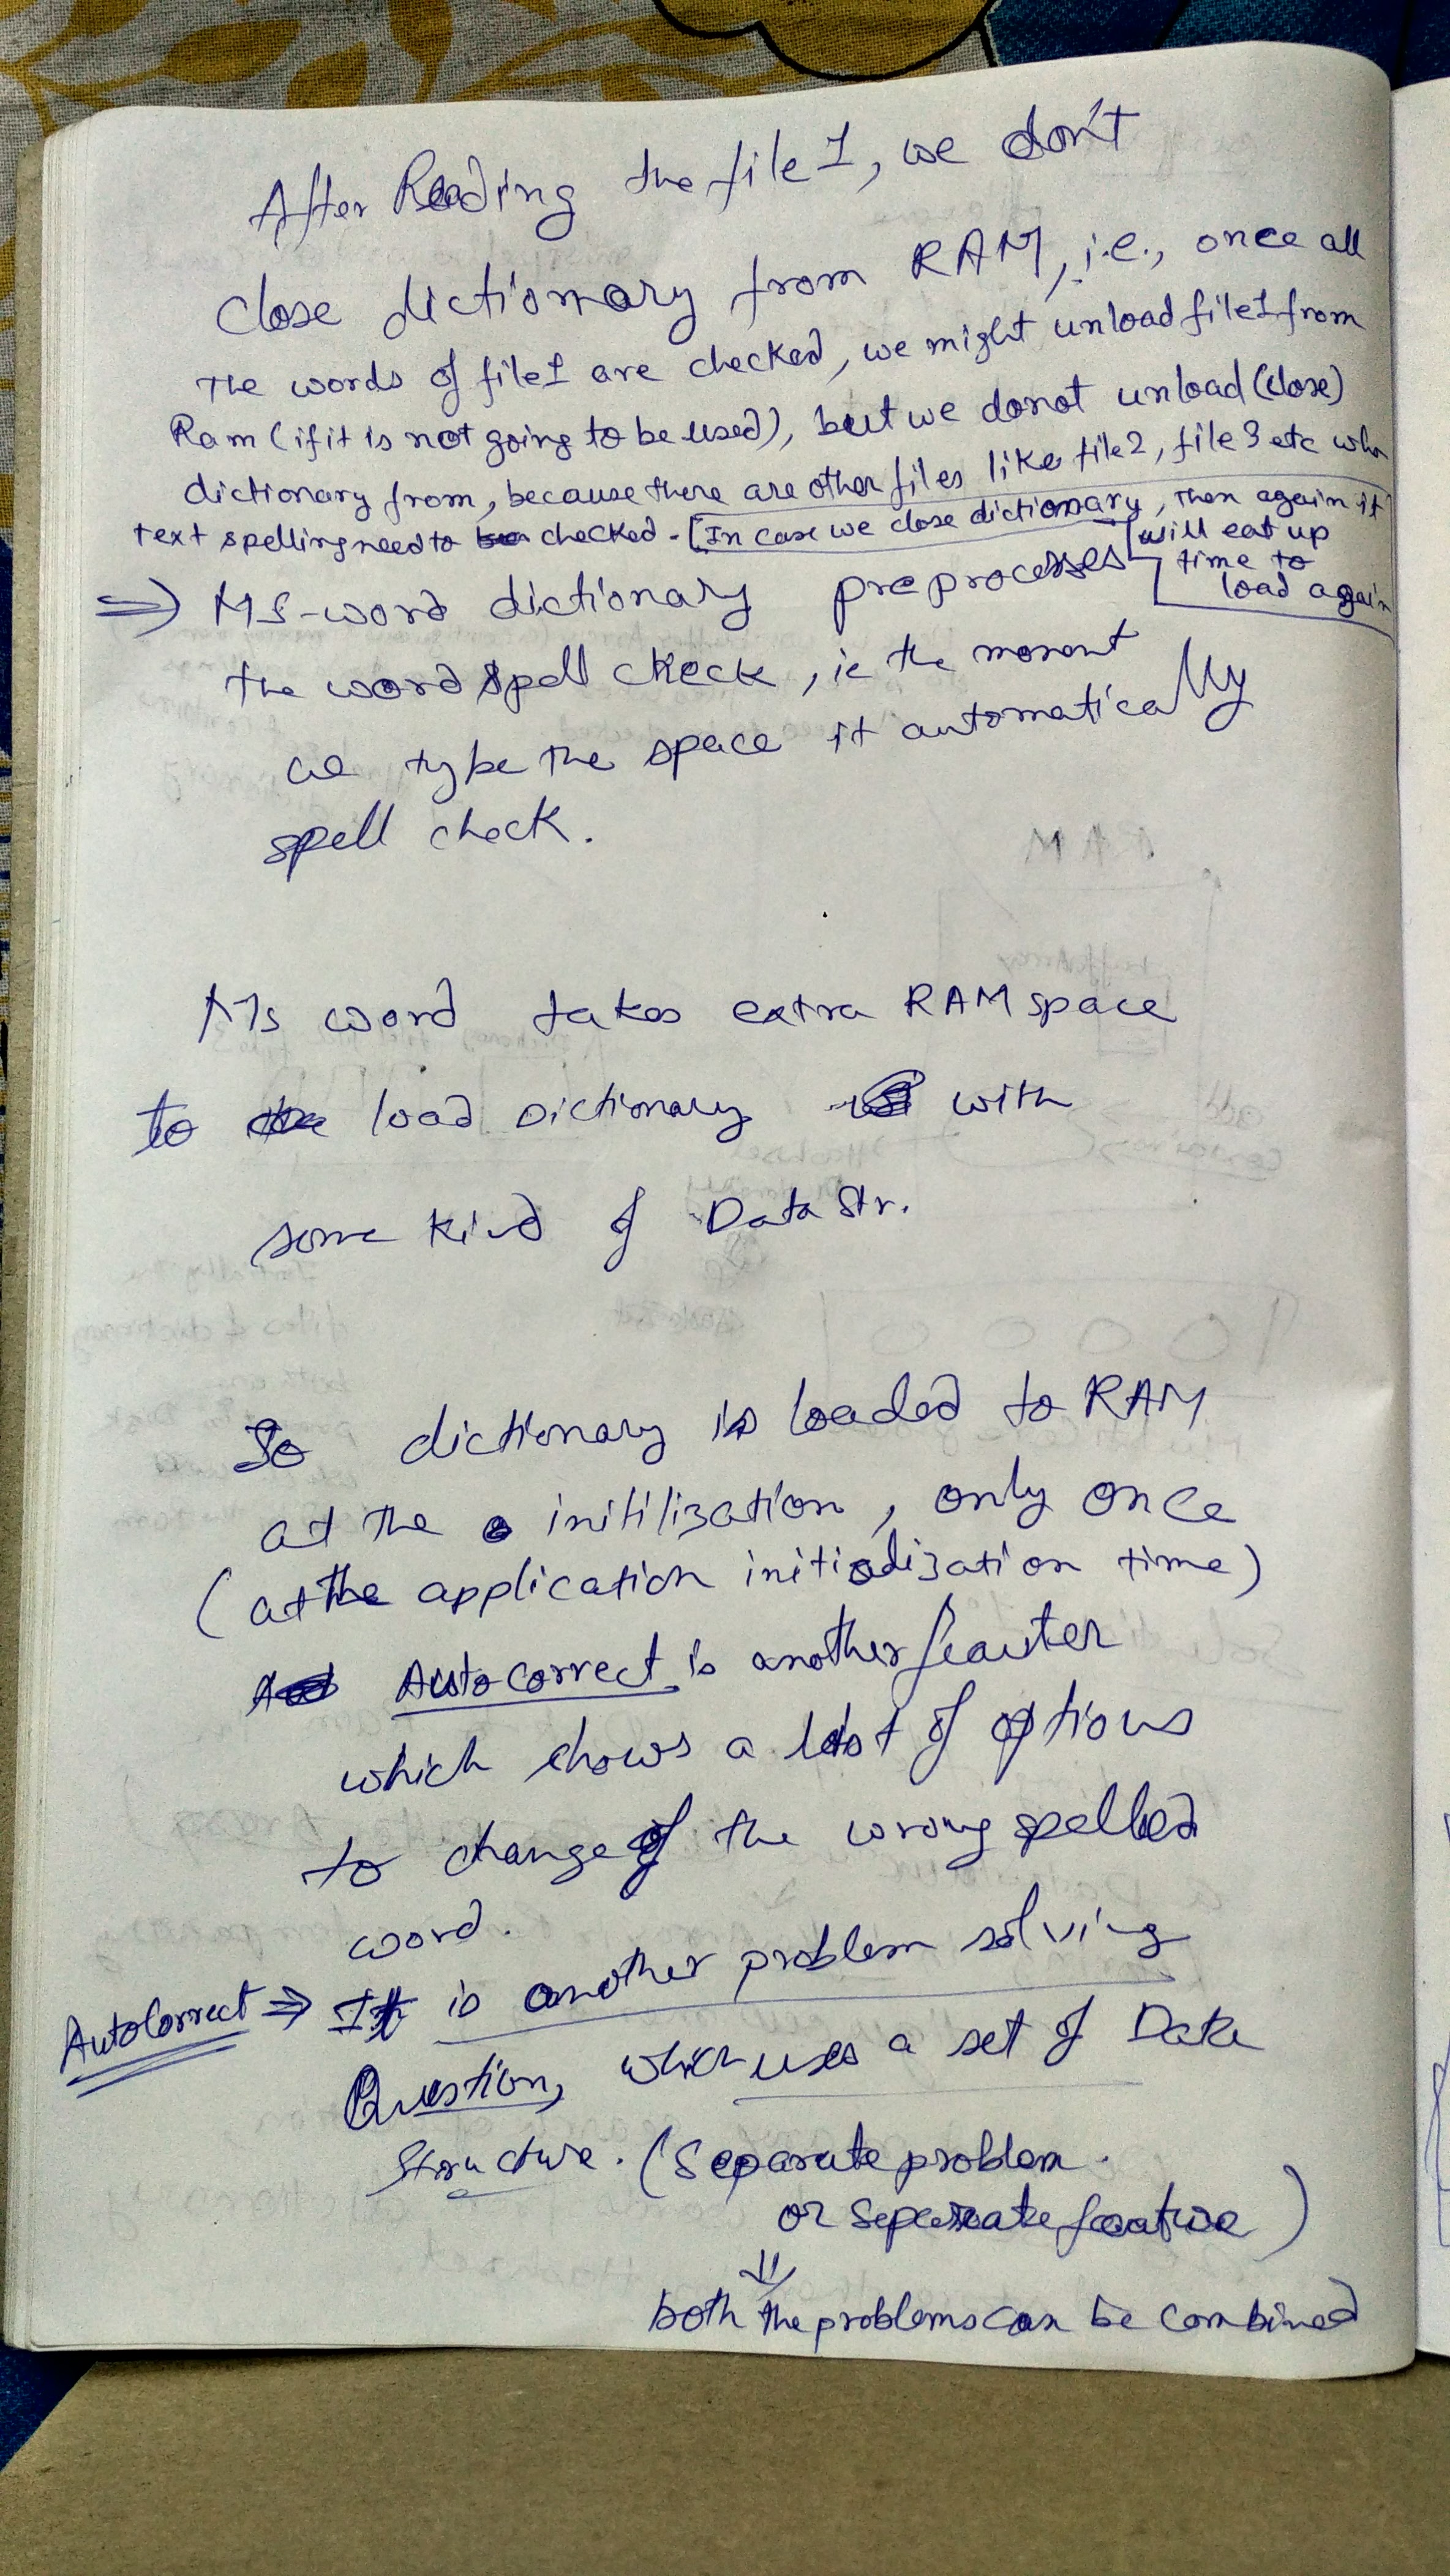 After Reading the file1, we don't
close dictionary from RAM, i.e., once all
the words of file1 are checked, we might unload file1 from
Ram (if it is not going to be used), but we donot unload (close)
dictionary from, because there are other files like file2, file3 etc who
text spelling need to checked. [In case we close dictionary, then again it
will eat up
time to
load again
⇒ MS-word dictionary preprocesses
the word spell check, ie the moment
we type the space it automatically
spell check.
Ms word takes extra RAM space
to load Dictionary with
some kind of Data Str.
So dictionary is loaded to RAM
at the initilization, only once
(at the application initialization time)
Autocorrect is another feauter
which shows a list of options
to change of the wrong spelled
word.
AutoCorrect ⇒ It is another problem solving
Question, which uses a set of Data
Structure. (Separate problem.
or Seperate feature)
⇓
both the problems can be combined